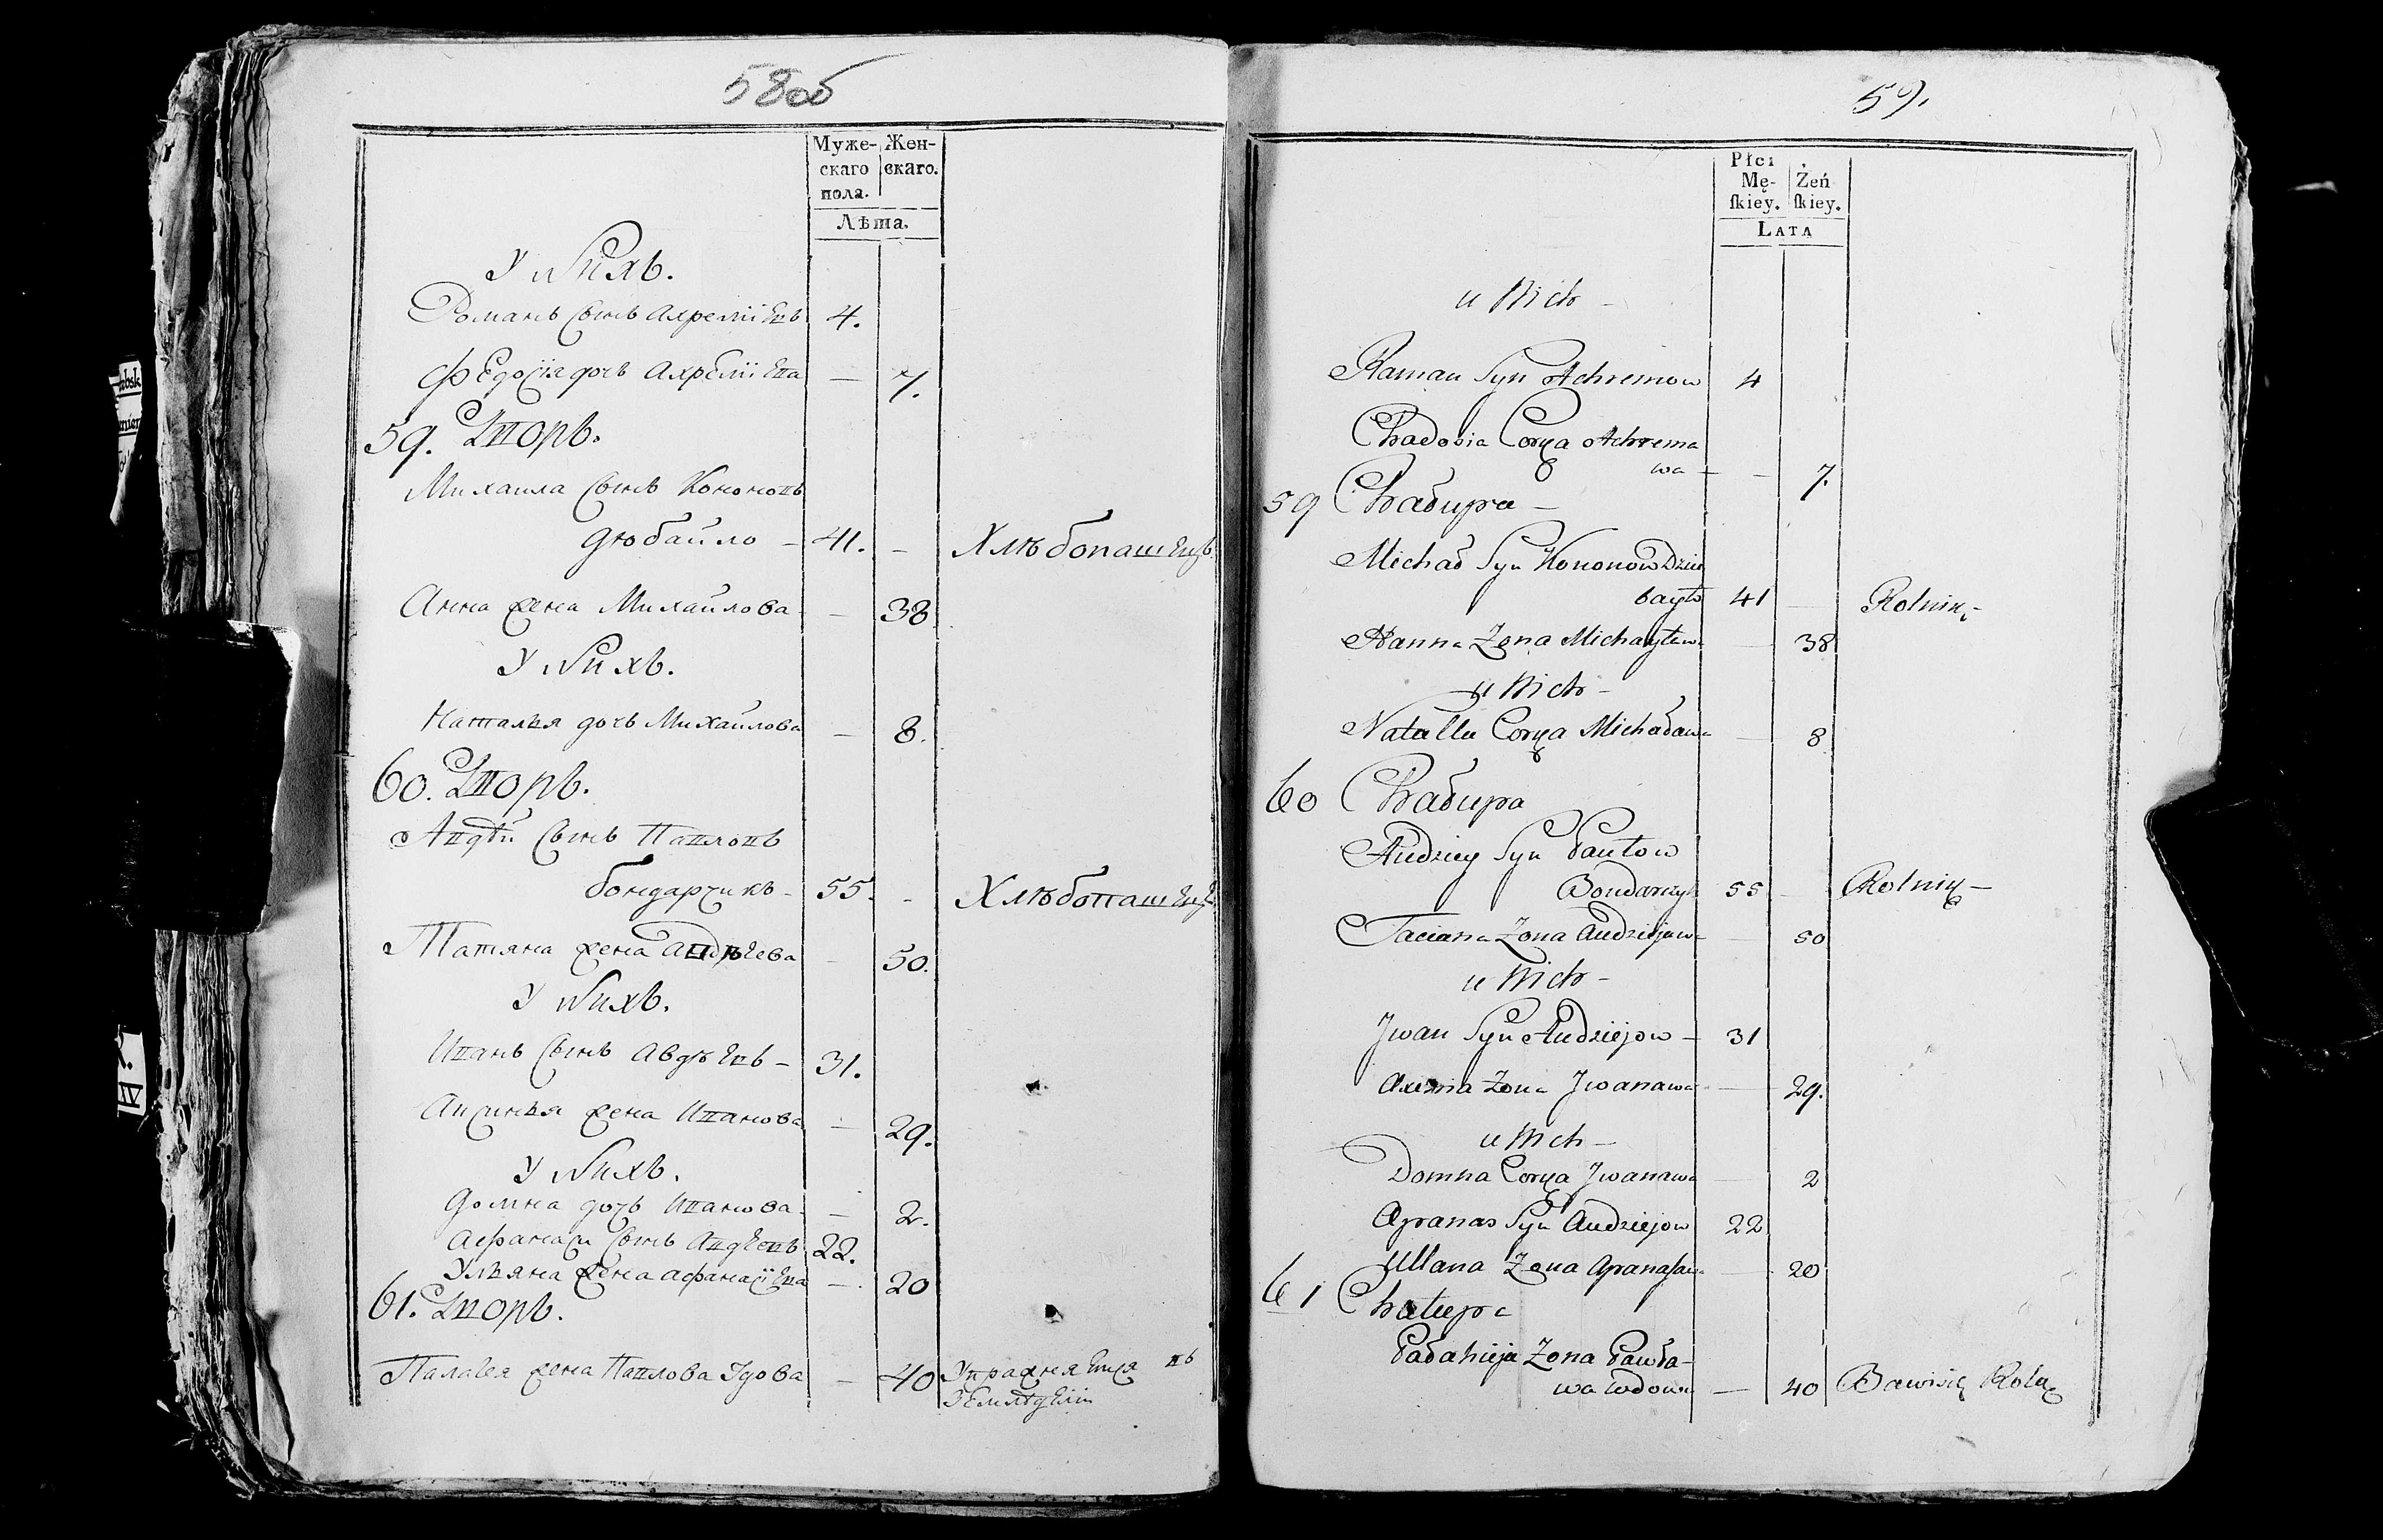 58об
Муже- Жен-
скаго скаго.
пола.
Лѣта.
У Нихъ.
Романъ сынъ Ахремiевъ 4.
Федосiя дочь Ахремiева — 7.
59. Дворъ.
Михаила сынъ Кононовъ
дюбайло — 41. - Хлѣбопашецъ
Анна жена Михайлова — 38
У Нихъ.
Наталья дочь Михайлова — 8.
60. Дворъ.
Авдѣй сынъ Павловъ
бондарчикъ - 55. - Хлѣбопашецъ
Татяна жена Авдѣева — 50.
У Нихъ.
Иванъ сынъ Авдѣевъ — 31.
Аксинья жена Иванова — 29.
У Нихъ.
Домна дочь Иванова — 2.
Афанаси сынъ Авдеевъ 22.
Ульяна жена Афанасiева — 20
61. Дворъ.
Палагея жена Павлова Удова — 40 Упражняется въ
Земледелiи
59.
Płci
Mę- Żeń
ſkiey. ſkiey.
LATA
u Nich —
Raman Syn Achremow 4
Chadosia Corka Achrema
wa — — 7.
59 Chałupa —
Michał Syn Kononow Dziu
bayło 41 Rolnik —
Hanna Zona Michayława — 38
u Nich —
Natalla Corka Michaława — 8
60 Chałupa
Audziey Syn Paułow
Bondarczyk 55 — Rolnik —
Taciana Zona Audziejawa — 50
u Nich —
Jwan Syn Audziejow — 31
Axenia Zona Jwanawa — 29.
u Nich —
Domna Corka Jwanawa — 2
Apanas Syn Audziejow 22
Ullana Zona Apanaſawa — 20
61 Chałupa
Pałahieja Zona Pawła-
wa wdowa — 40 Bawisię Rolą